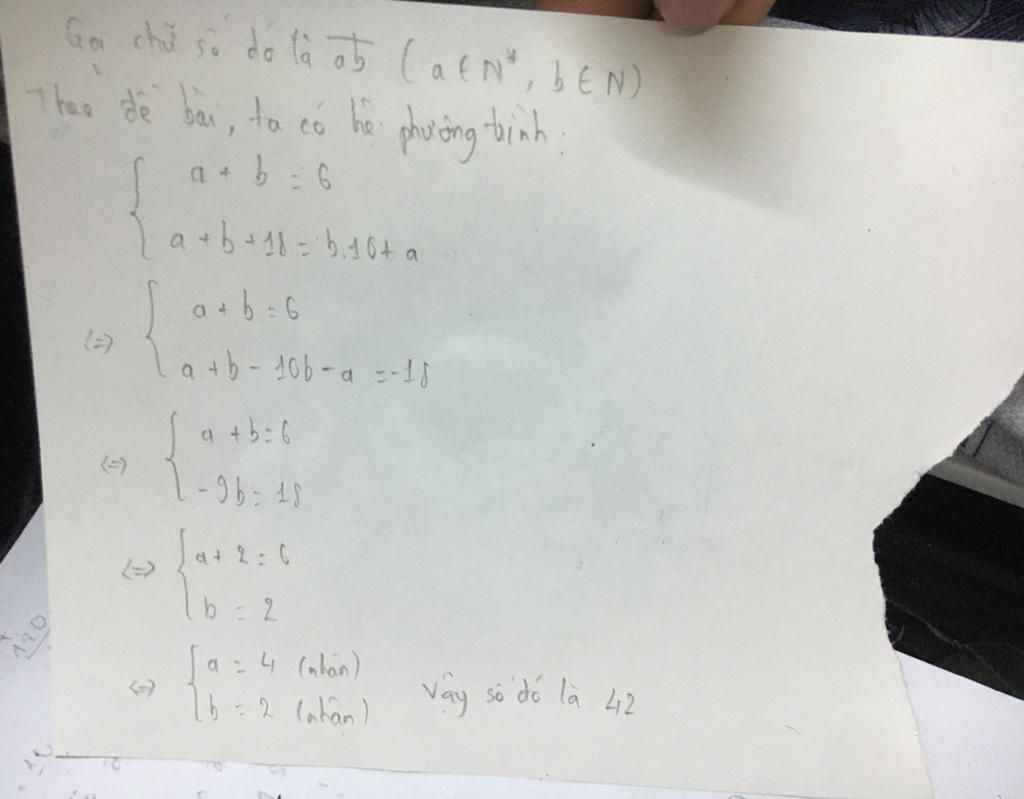 Gọi chữ số đó là ab (a ∈ N*, b ∈ N)
Theo đề bài, ta có hệ phương trình:
{ a + b = 6
a + b + 18 = b.10 + a
<=> { a + b = 6
a + b - 10b - a = -18
<=> { a + b = 6
- 9b = 18
<=> { a + 2 = 6
b = 2
<=> { a = 4 (nhận)
b = 2 (nhận) Vậy số đó là 42
120